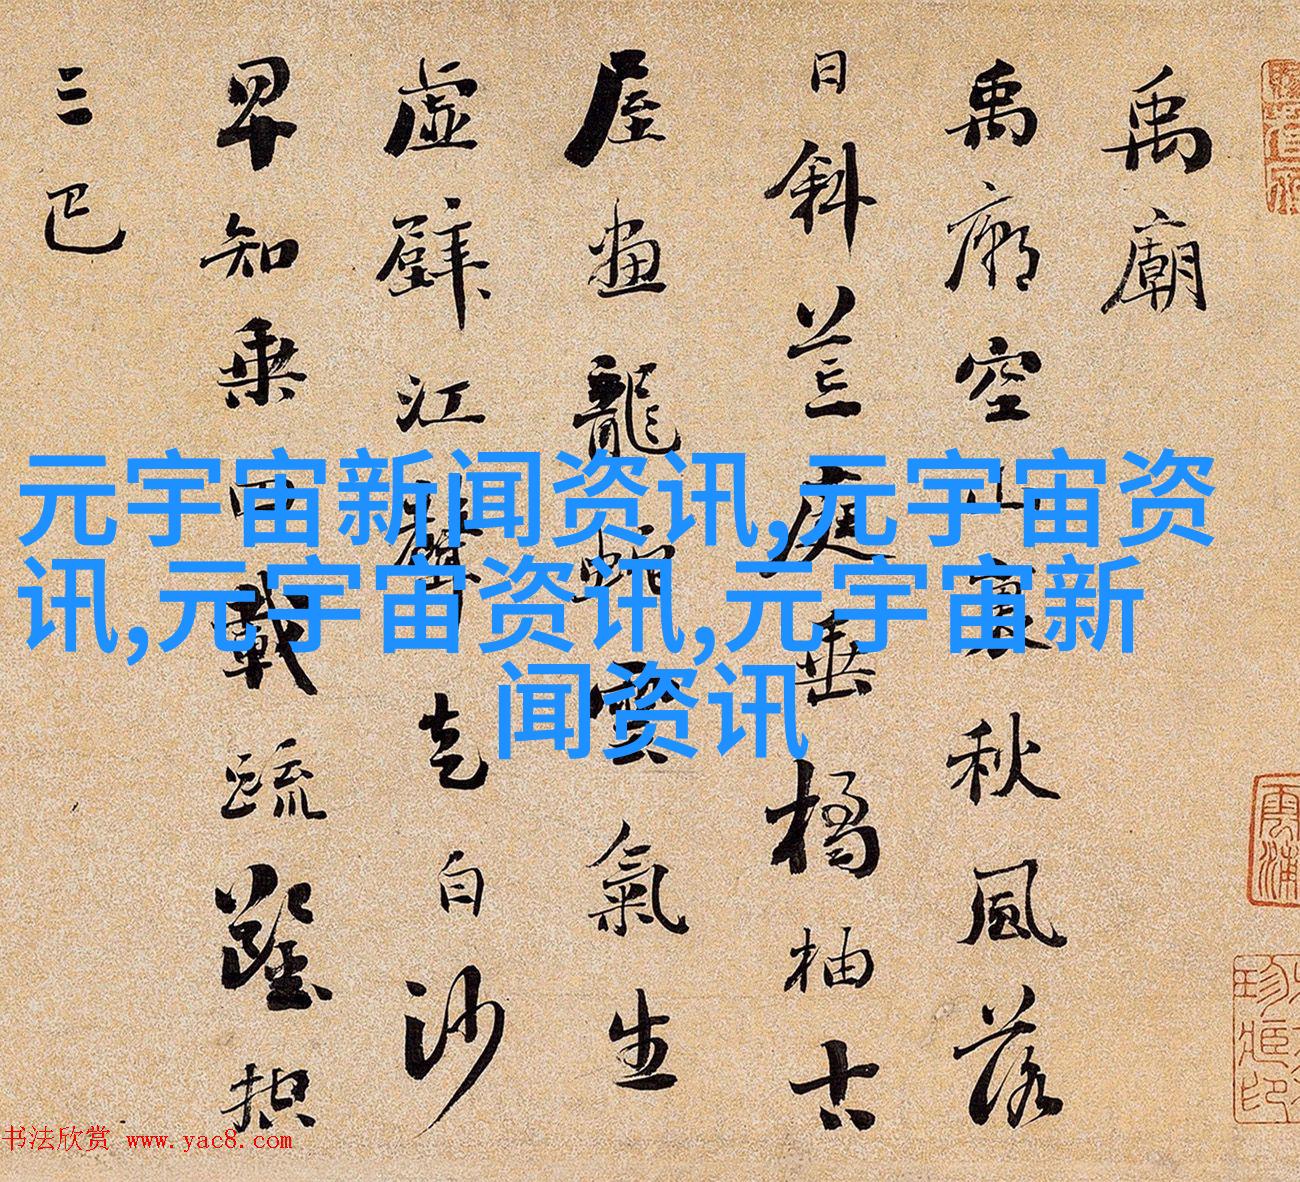 禹廟
禹廟空山裏秋風落
日斜荒庭垂橘柚古
屋畫龍蛇雲氣生
虛壁江聲走白沙
早知乘四載疏鑿控
三巴
元宇宙新闻资讯,元宇宙资
讯,元宇宙资讯,元宇宙新
闻资讯
书法欣赏 www.yac8.com